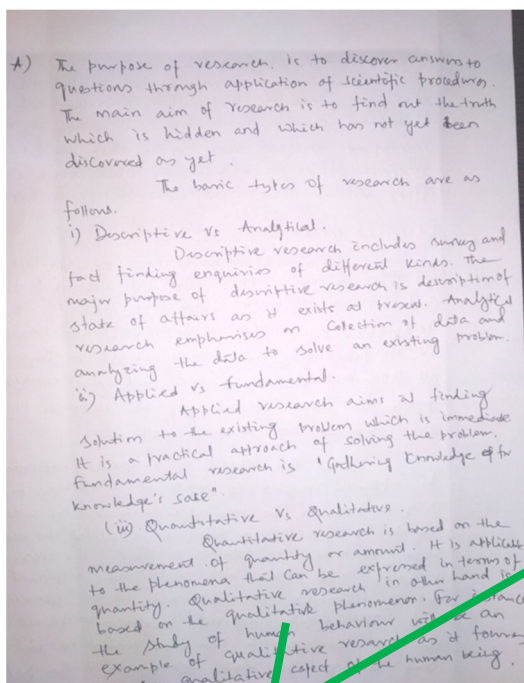 A) The purpose of research. is to discover answers to
questions through application of scientific procedures.
The main aim of research is to find out the truth
which is hidden and which has not yet been
discovered as yet.
The basic types of research are as
follows.
i) Descriptive vs Analytical.
Descriptive research includes survey and
fact finding enquiries of different kinds. The
major purpose of descriptive research is description of
state of affairs as it exists at present. Analytical
research emphasises on Colection of data and
analyzing the data to solve an existing problem.
ii) Applied vs fundamental.
Applied research aims at finding
solution to the existing problem which is immediate
It is a practical approach of solving the problem.
Fundamental research is "Gathering Knowledge for
knowledge's sake"
(iii) Quantitative Vs Qualitative.
Quantitative research is based on the
measurement of quantity or amount. It is applicable
to the phenomena that can be expressed in terms of
quantity. Qualitative research in other hand is
based on the qualitative phenomenon. For instance
the study of human behaviour will be an
example of qualitative research as it
qualitative aspect of the human being.